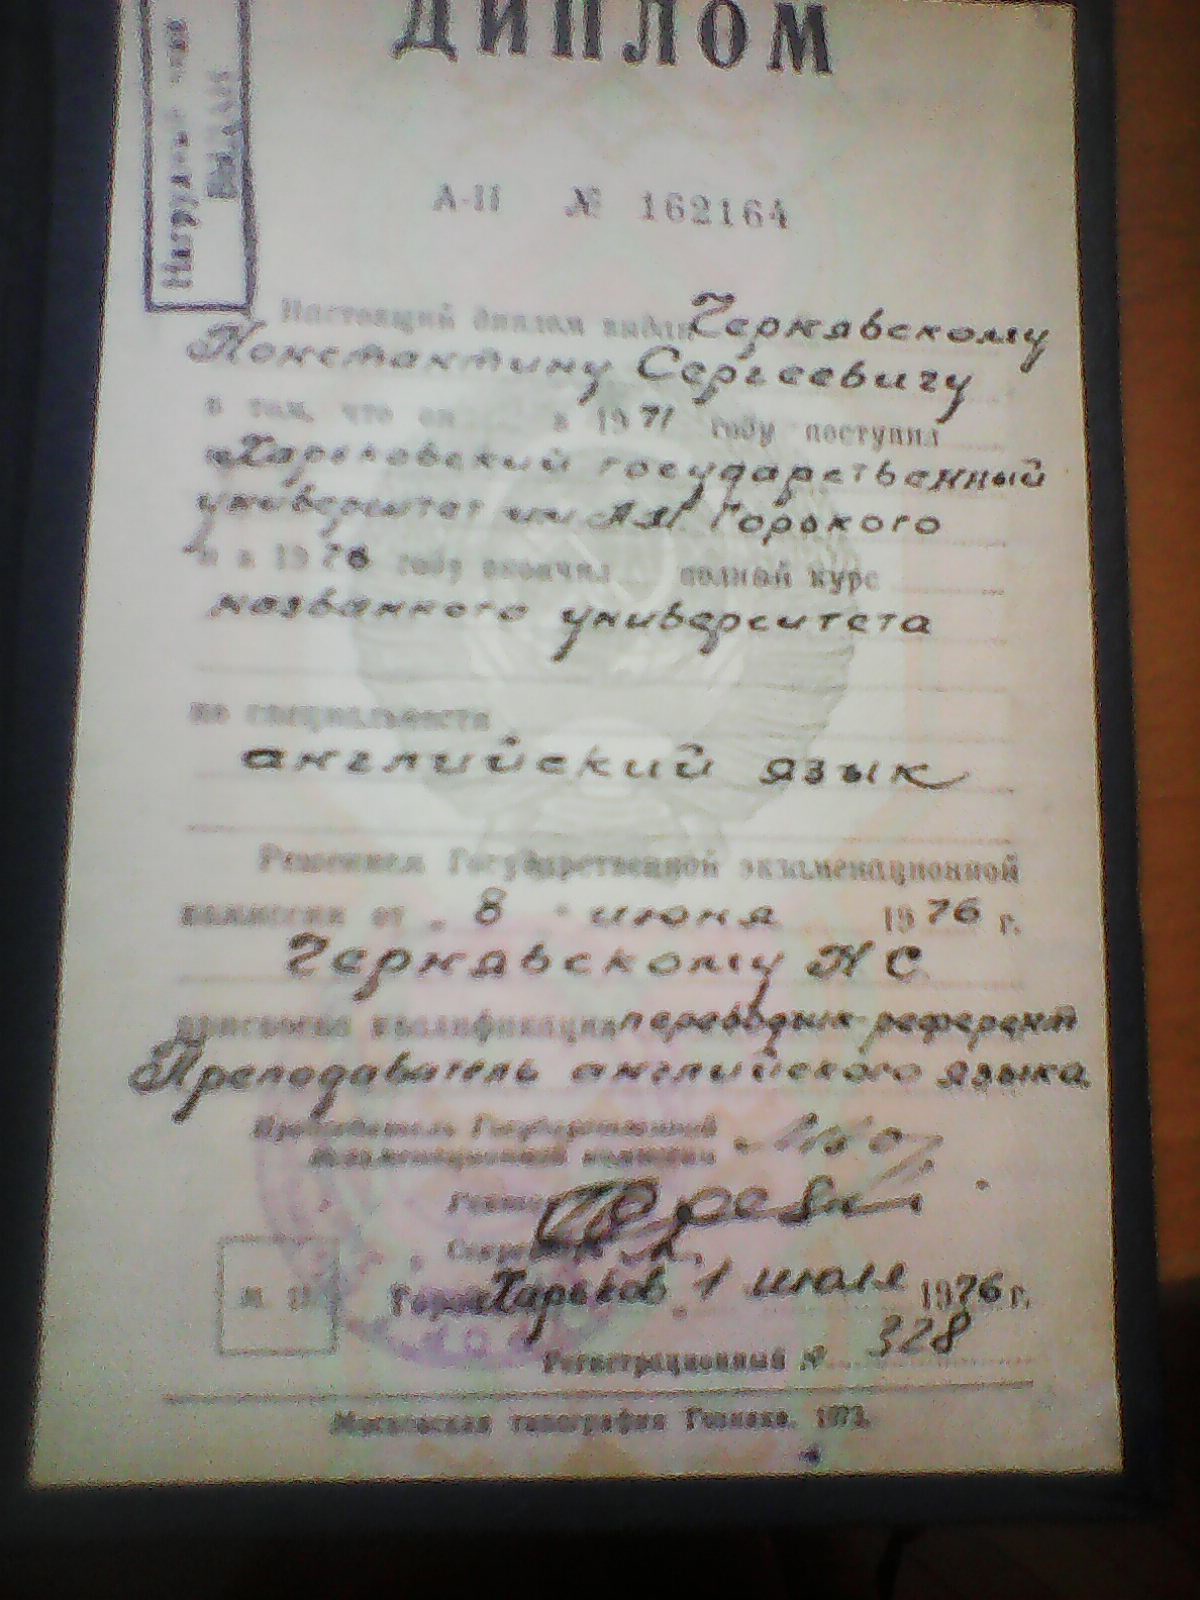 ДИПЛОМ
Нагрудный знак
Выдан
А-II № 162164
Настоящий диплом выдан Чернявскому
Константину Сергеевичу
в том, что он в 1971 году поступил
в Харьковский государственный
университет им А.М. Горького
и в 1976 году окончил полный курс
названного университета
по специальности
английский язык
Решением Государственной экзаменационной
комиссии от „ 8 " июня 1976 г.
Чернявскому К С
присвоена квалификация переводчик-референт
Преподаватель английского языка
Председатель Государственной
экзаменационной комиссии
Ректор
Секретарь
М. П. Город Харьков 1 июля 1976 г.
Регистрационный № 328
Московская типография Гознака. 1973.